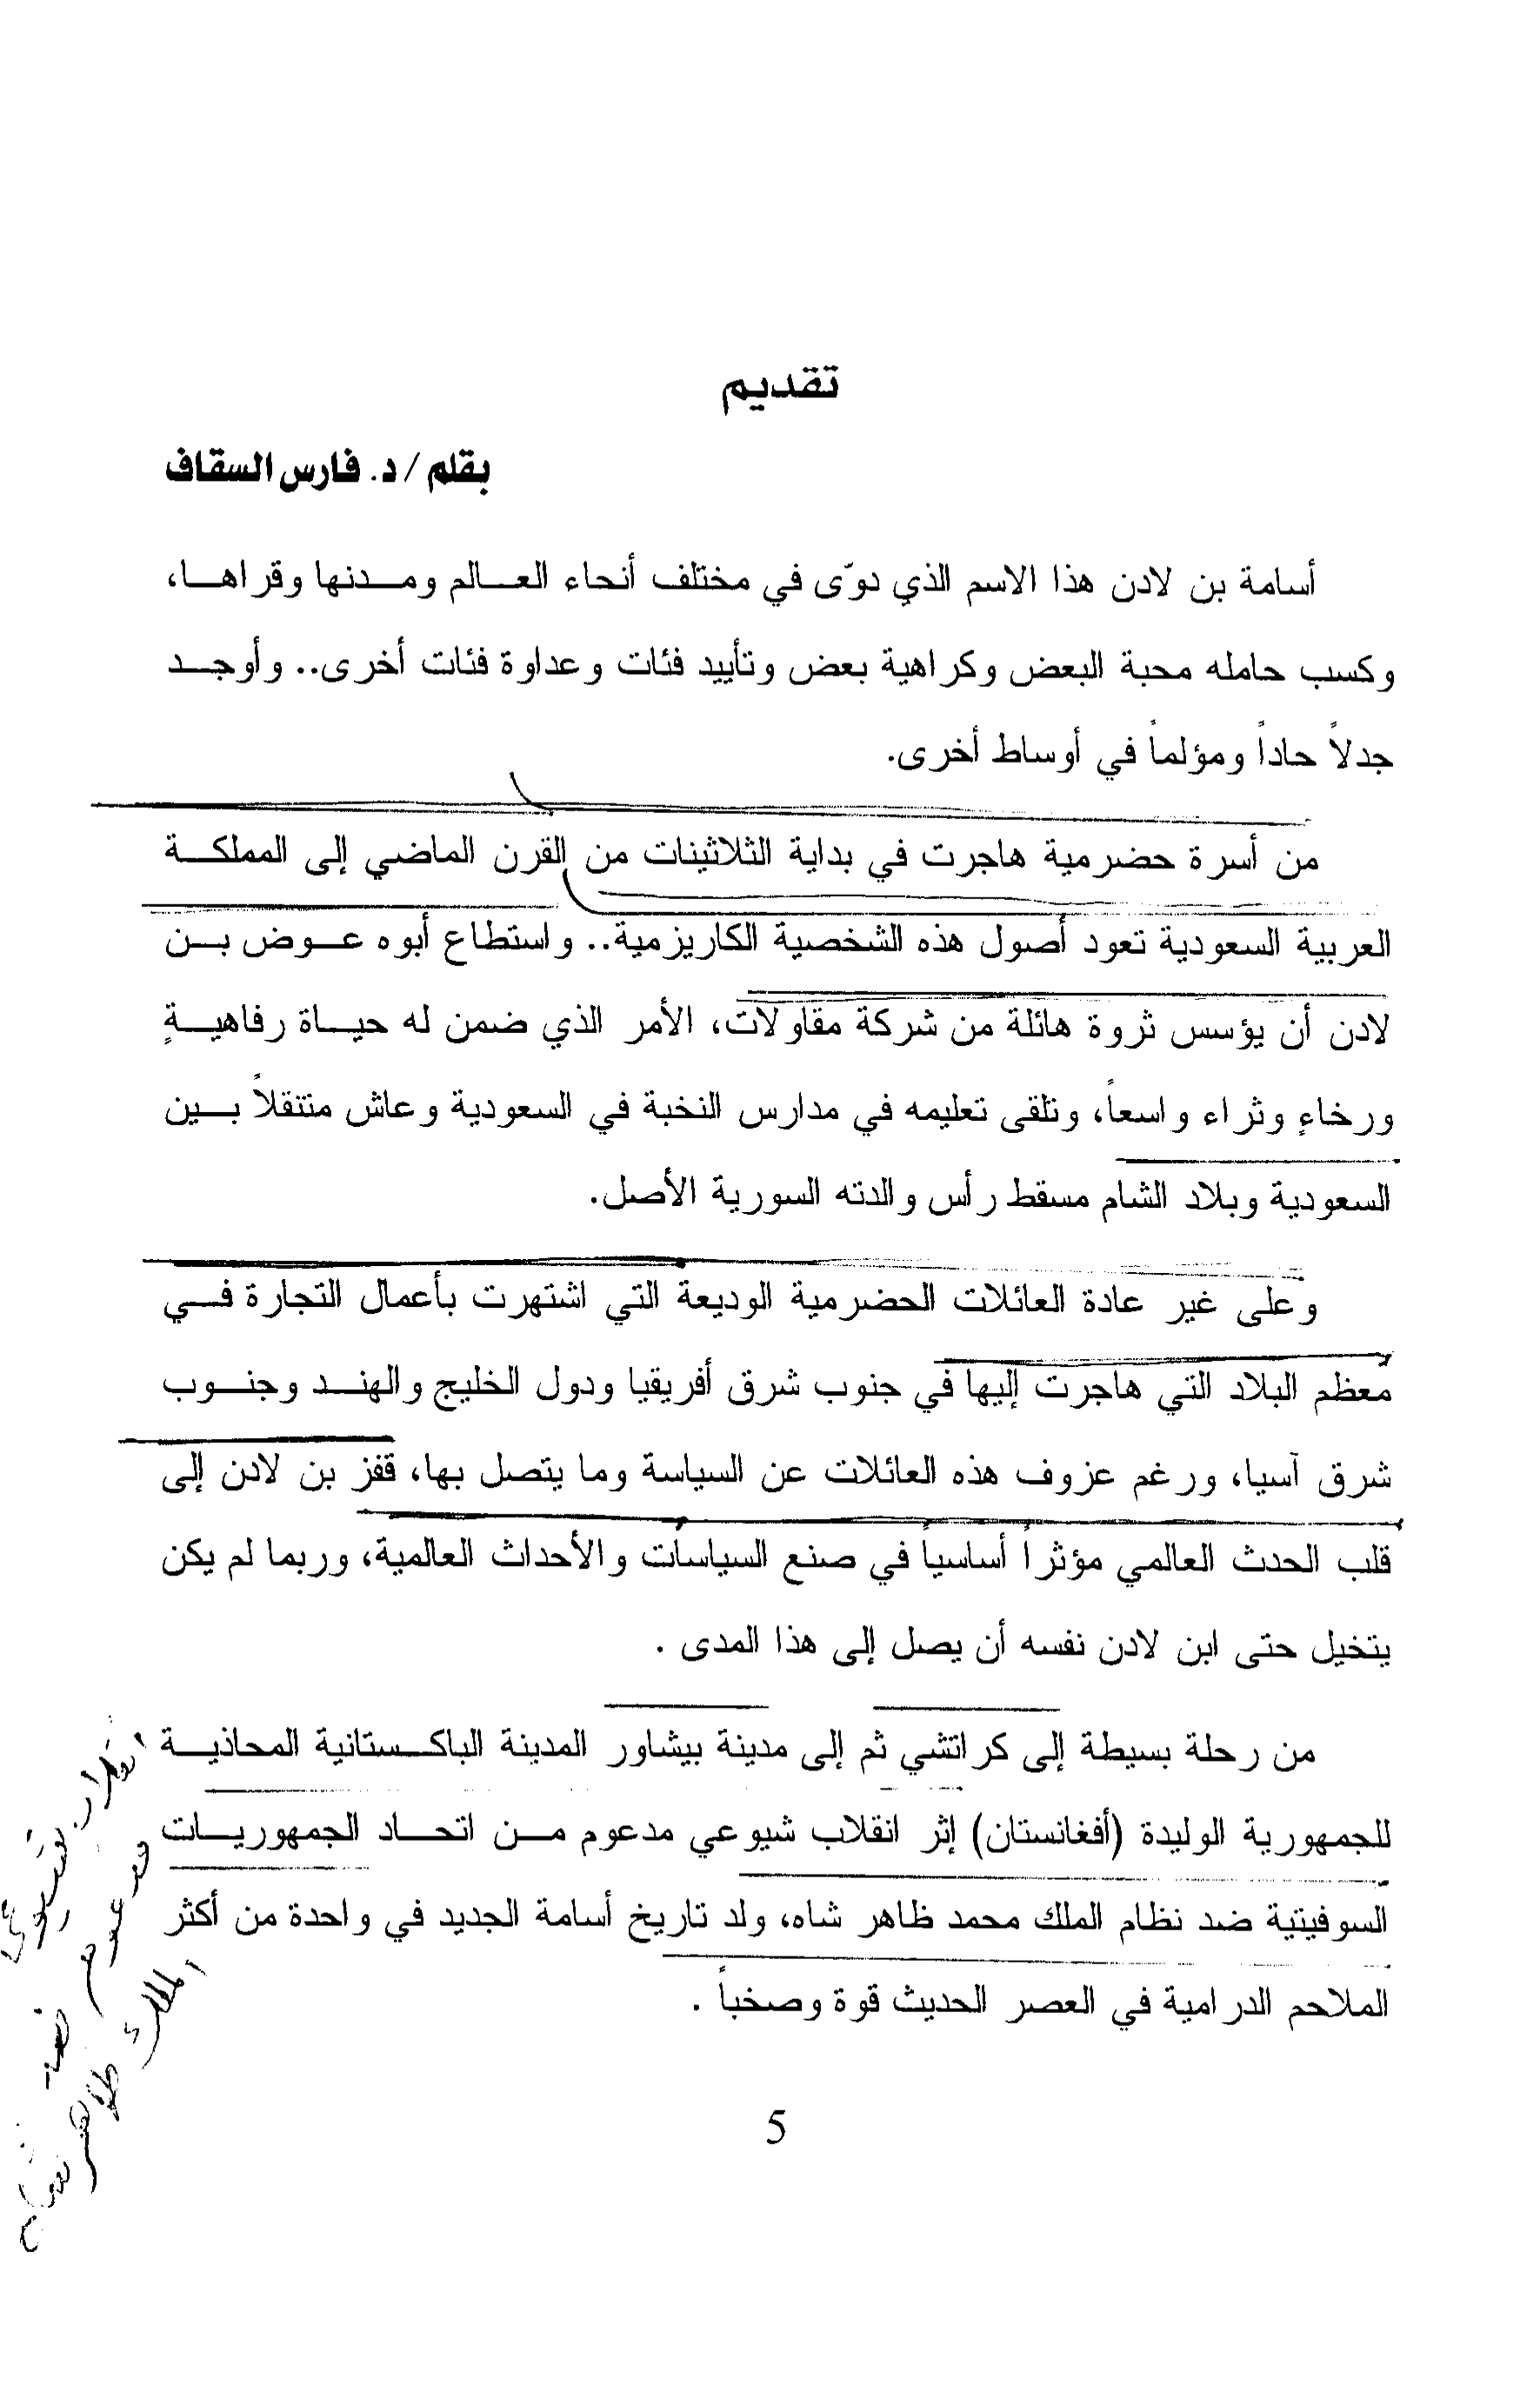 تقديم
بقلم / د. فارس السقاف
أسامة بن لادن هذا الاسم الذي دوّى في مختلف أنحاء العالم ومدنها وقراها،
وكسب حامله محبة البعض وكراهية بعض وتأييد فئات وعداوة فئات أخرى.. وأوجد
جدلاً حاداً ومؤلماً في أوساط أخرى.
من أسرة حضرمية هاجرت في بداية الثلاثينات من القرن الماضي إلى المملكة
العربية السعودية تعود أصول هذه الشخصية الكاريزمية.. واستطاع أبوه عوض بن
لادن أن يؤسس ثروة هائلة من شركة مقاولات، الأمر الذي ضمن له حياة رفاهيةٍ
ورخاءٍ وثراء واسعاً، وتلقى تعليمه في مدارس النخبة في السعودية وعاش متنقلاً بين
السعودية وبلاد الشام مسقط رأس والدته السورية الأصل.
وعلى غير عادة العائلات الحضرمية الوديعة التي اشتهرت بأعمال التجارة في
معظم البلاد التي هاجرت إليها في جنوب شرق أفريقيا ودول الخليج والهند وجنوب
شرق آسيا، ورغم عزوف هذه العائلات عن السياسة وما يتصل بها، قفز بن لادن إلى
قلب الحدث العالمي مؤثراً أساسياً في صنع السياسات والأحداث العالمية، وربما لم يكن
يتخيل حتى ابن لادن نفسه أن يصل إلى هذا المدى .
من رحلة بسيطة إلى كراتشي ثم إلى مدينة بيشاور المدينة الباكستانية المحاذية
للجمهورية الوليدة (أفغانستان) إثر انقلاب شيوعي مدعوم من اتحاد الجمهوريات
السوفيتية ضد نظام الملك محمد ظاهر شاه، ولد تاريخ أسامة الجديد في واحدة من أكثر
الملاحم الدرامية في العصر الحديث قوة وصخباً .
5
انقلاب
الملك ظاهر شاه